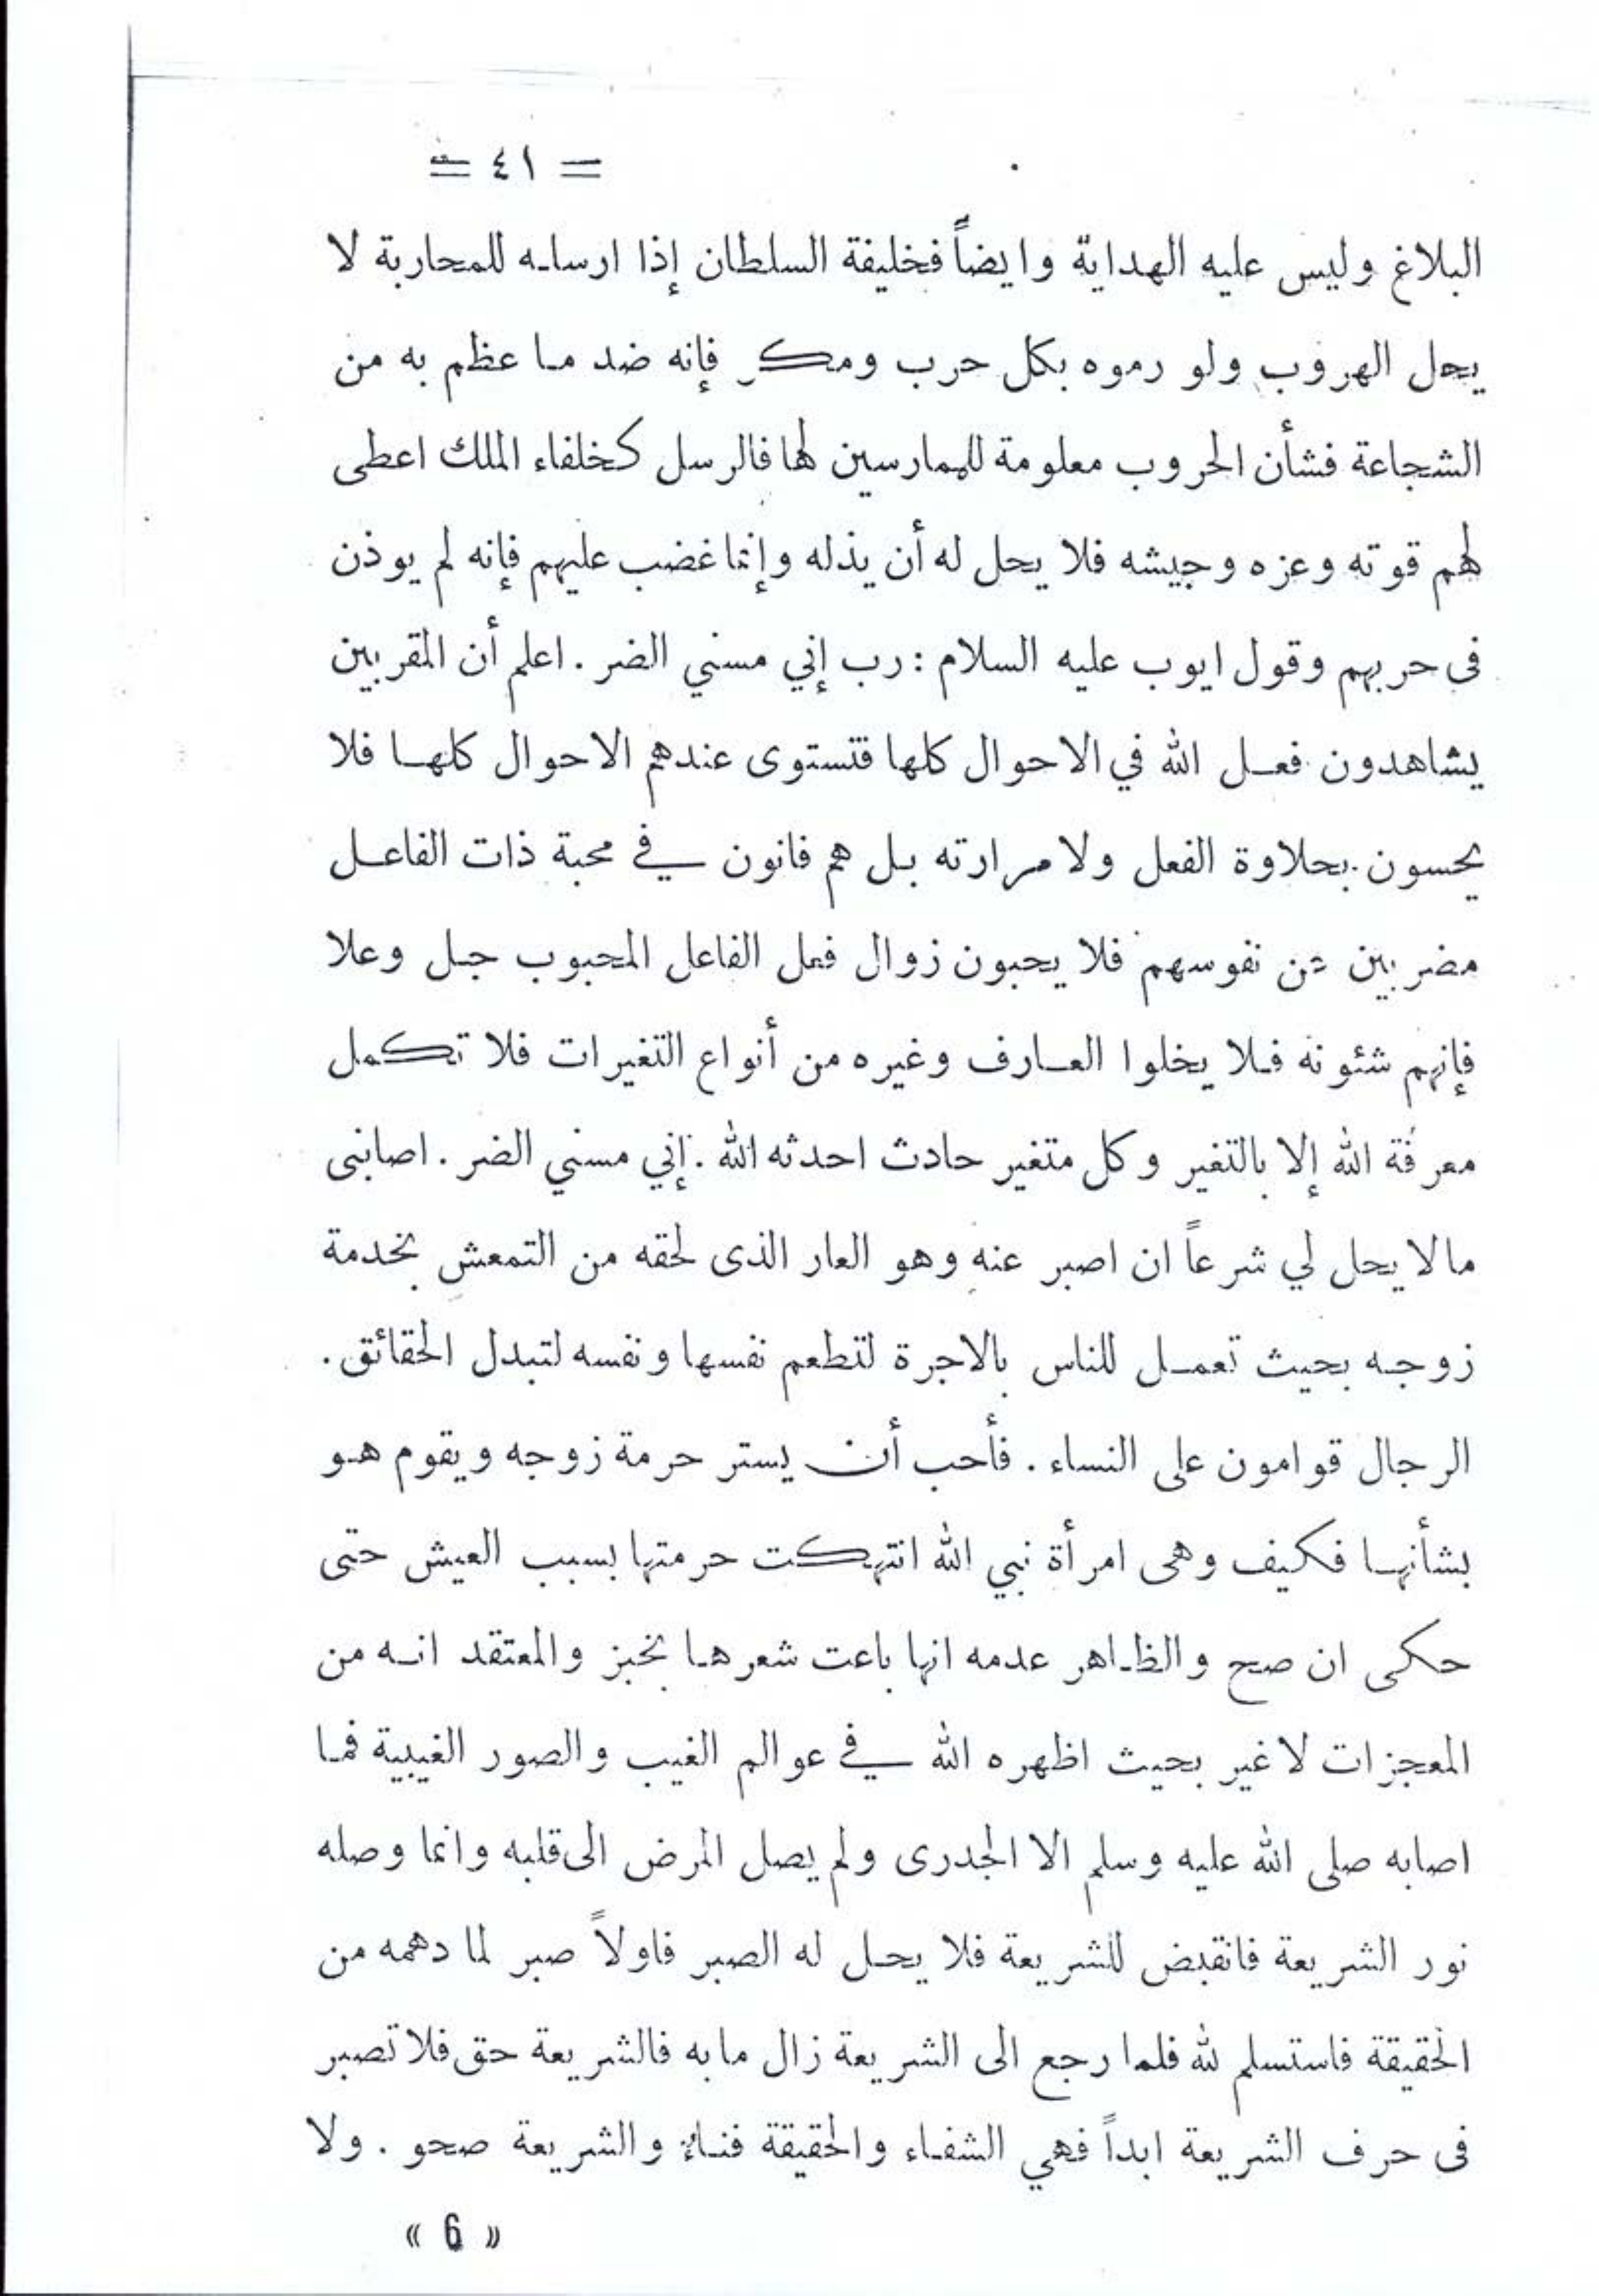 = ٤١ =
البلاغ وليس عليه الهداية وايضاً فخليفة السلطان إذا ارسله للمحاربة لا
يحل الهروب ولو رموه بكل حرب ومكر فإنه ضد ما عظم به من
الشجاعة فشأن الحروب معلومة للممارسين لها فالرسل كخلفاء الملك اعطى
لهم قوته وعزه وجيشه فلا يحل له أن يذله وإنما غضب عليهم فإنه لم يوذن
فى حربهم وقول ايوب عليه السلام : رب إني مسني الضر . اعلم أن المقربين
يشاهدون فعل الله في الاحوال كلها فتستوى عندهم الاحوال كلها فلا
يحسون بحلاوة الفعل ولا مرارته بل هم فانون في محبة ذات الفاعل
مضربين عن نفوسهم فلا يحبون زوال فعل الفاعل المحبوب جل وعلا
فإنهم شئونه فلا يخلوا العارف وغيره من أنواع التغيرات فلا تكمل
معرفة الله إلا بالتغير وكل متغير حادث احدثه الله . إني مسني الضر . اصابنى
مالا يحل لي شرعاً ان اصبر عنه وهو العار الذى لحقه من التمعش بخدمة
زوجه بحيث تعمل للناس بالاجرة لتطعم نفسها ونفسه لتبدل الحقائق .
الرجال قوامون على النساء . فأحب أن يستر حرمة زوجه ويقوم هو
بشأنها فكيف وهى امرأة نبي الله انتهكت حرمتها بسبب العيش حتى
حكى ان صح والظاهر عدمه انها باعت شعرها بخبز والمعتقد انه من
المعجزات لا غير بحيث اظهره الله في عوالم الغيب والصور الغيبية فما
اصابه صلى الله عليه وسلم الا الجدرى ولم يصل المرض الى قلبه وانما وصله
نور الشريعة فانقبض للشريعة فلا يحل له الصبر فاولاً صبر لما دهمه من
الحقيقة فاستسلم لله فلما رجع الى الشريعة زال مابه فالشريعة حق فلا تصبر
فى حرف الشريعة ابداً فهي الشفاء والحقيقة فناء والشريعة صحو . ولا
« 6 »